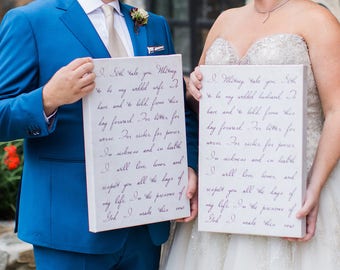 I Seth take you Whitney
to be my wedded wife. To
have and to hold, from this
day forward. For better, for
worse. For richer for poorer
In sickness and in health
I will love, honor and
respect you all the days of
my life. In the presence of
God I make this vow
I Whitney take you Seth
to be my wedded husband. To
have and to hold, from this
day forward. For better for
worse. For richer for poorer
In sickness and in health
I will love, honor and
respect you all the days of
my life. In the presence of
God I make this vow